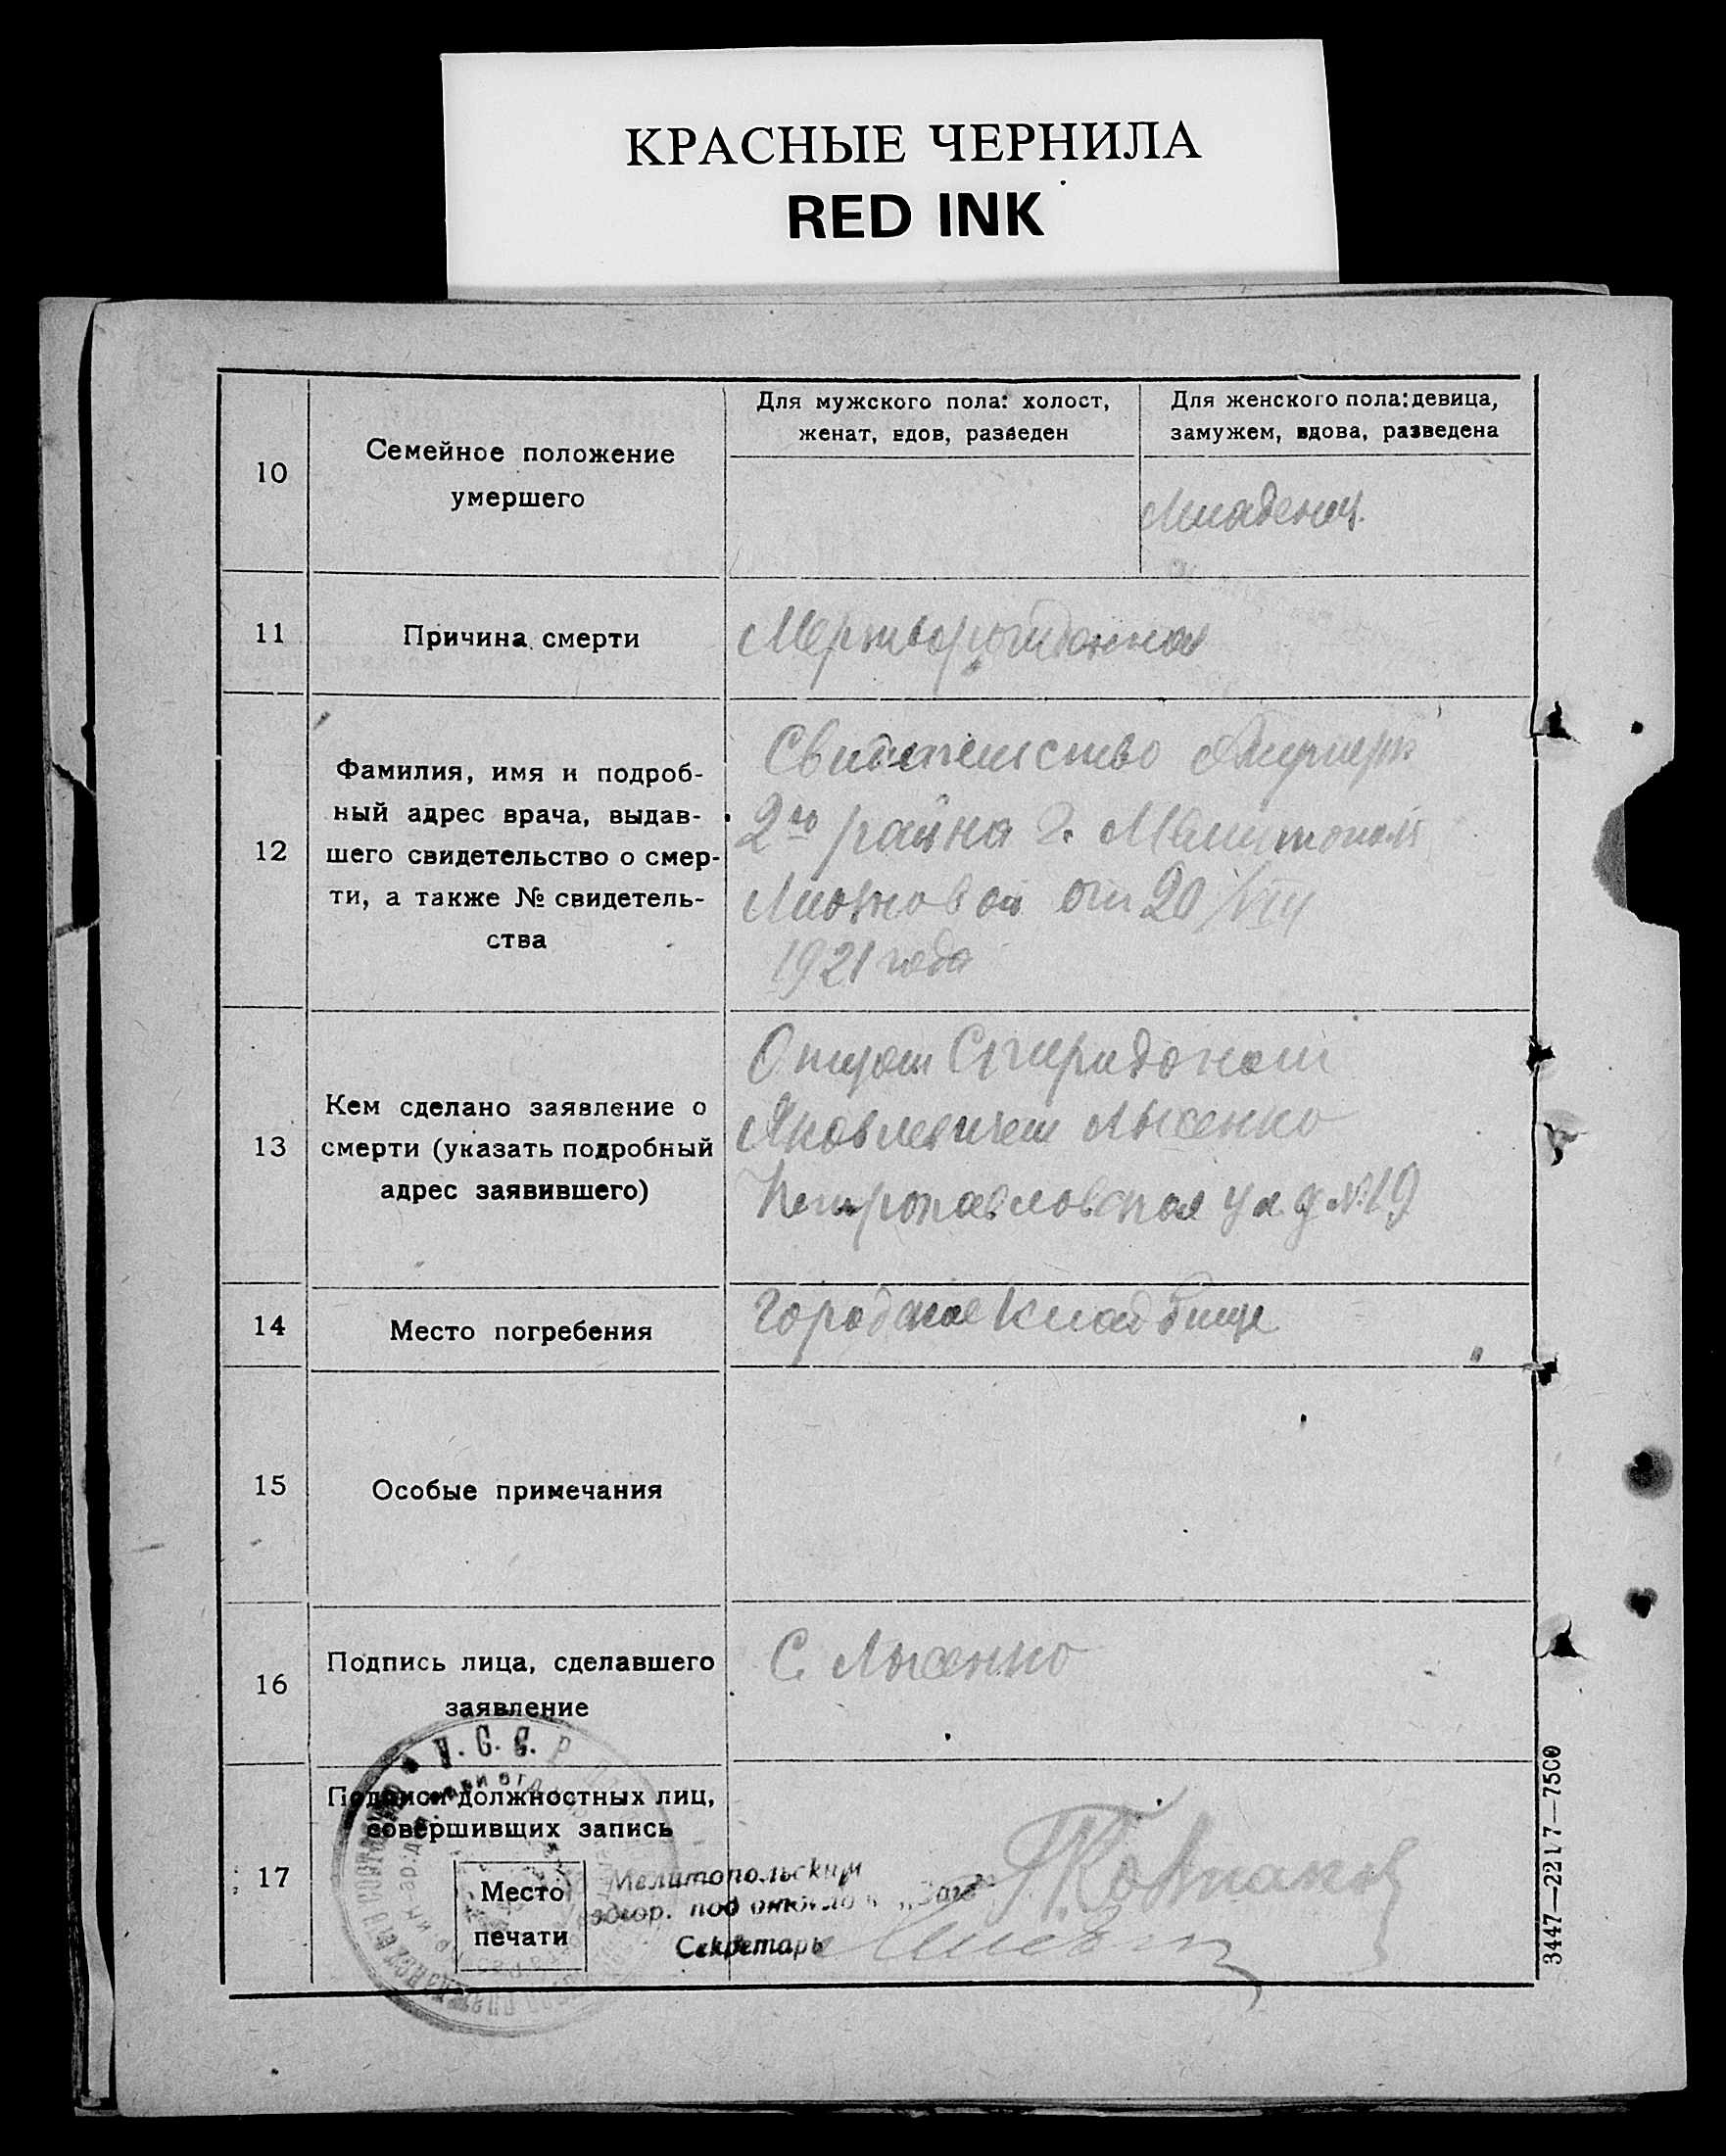 КРАСНЫЕ ЧЕРНИЛА
RED INK
10
Семейное положение
умершего
Для мужского пола: холост,
женат, вдов, разведен
Для женского пола: девица,
замужем, вдова, разведена
Младенец
11
Причина смерти
Мертворожденная
12
Фамилия, имя и подроб-
ный адрес врача, выдав-
шего свидетельство о смер-
ти, а также № свидетель-
ства
Свидетельство Акушерк
2го района г. Мелитополя
от 20/VIII
1921 года
13
Кем сделано заявление о
смерти (указать подробный
адрес заявившего)
Отцом Спиридоном
Яковлевичем Лысенко
Петропавловская ул д №19
14
Место погребения
Городское Кладбище
15
Особые примечания
16
Подпись лица, сделавшего
заявление
С. Лысенко
17
Подписи должностных лиц,
совершивших запись
Место
печати
У.С.С.Р.
Мелитопольским
под
Секретарь
3447—2217—7500